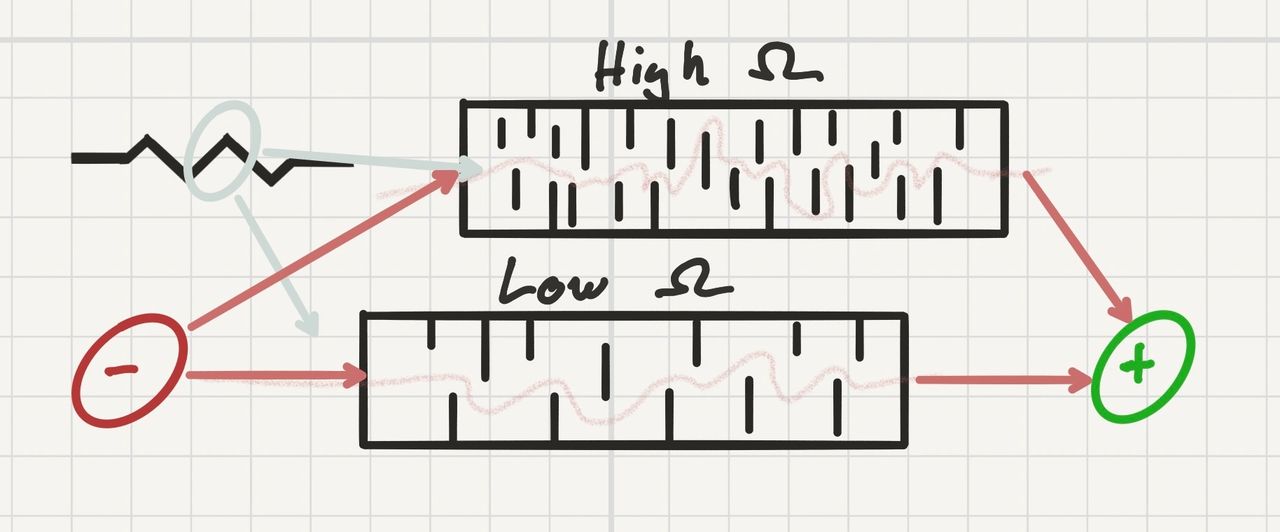 High Ω
Low Ω
-
+